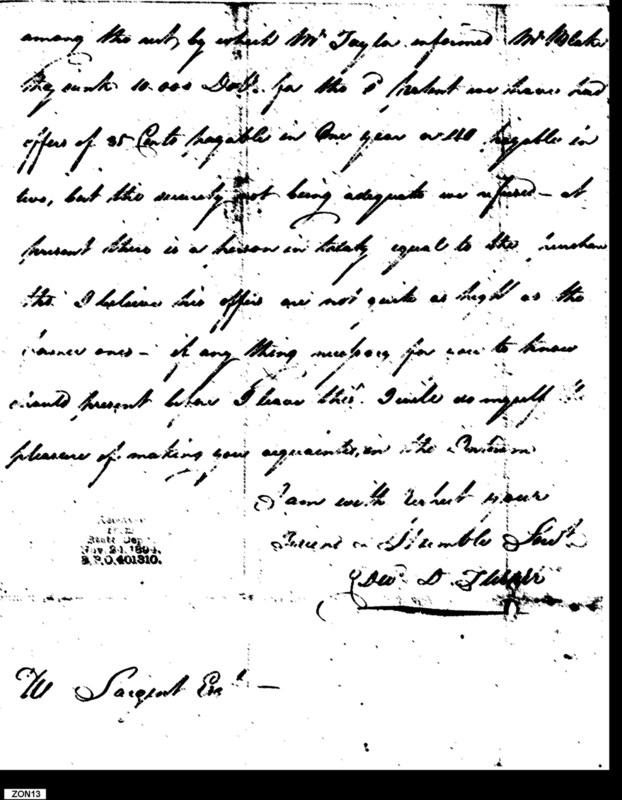 among the rest, by which Mr Taylor informed Mr Blake
they sunk 10.000 Dols. for the P present we have had
offers of 35 Cents payable in One year or 40 payable in
two, but the security not being adequate we refused — at
present there is a person in treaty equal to the purchase
tho' I believe his offers are not quite as high as the
former ones — if any thing necessary for you to know
should present before I leave this I will do myself the
pleasure of making you acquainted, in the
I am with respect your
Friend & Humble Servt
Geo. D.
Received
from
State Dep
Nov. 24, 1894.
B.P.O. 401310.
W Sargent Esqr —
ZON13